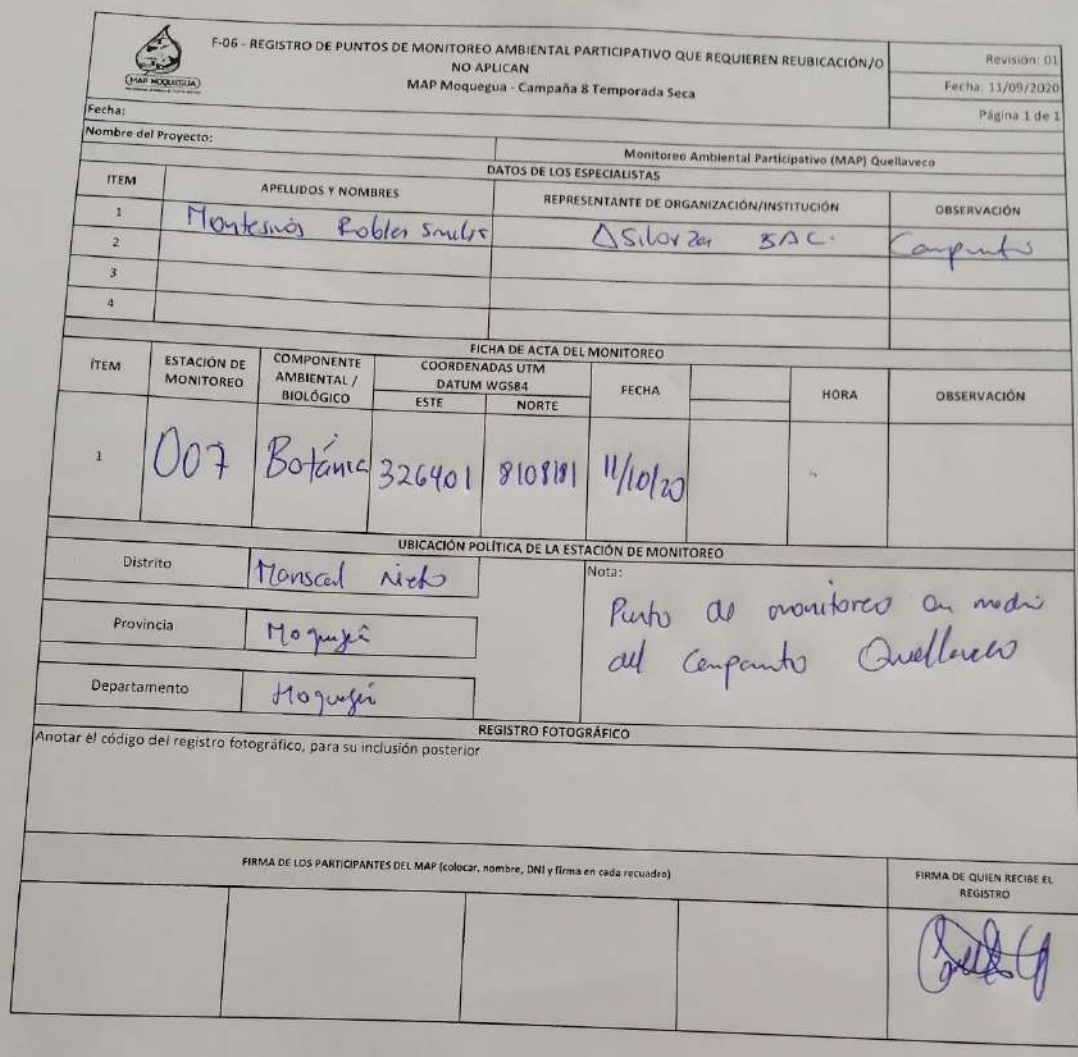 F-06 - REGISTRO DE PUNTOS DE MONITOREO AMBIENTAL PARTICIPATIVO QUE REQUIEREN REUBICACIÓN/O
NO APLICAN
MAP Moquegua - Campaña 8 Temporada Seca
MAP MOQUEGUA
Revisión: 01
Fecha: 11/09/2020
Página 1 de 1
Fecha:
Nombre del Proyecto: Monitoreo Ambiental Participativo (MAP) Quellaveco
DATOS DE LOS ESPECIALISTAS
ITEM APELLIDOS Y NOMBRES REPRESENTANTE DE ORGANIZACIÓN/INSTITUCIÓN OBSERVACIÓN
1 Montesinos Robles
2
3
4
FICHA DE ACTA DEL MONITOREO
ÍTEM ESTACIÓN DE MONITOREO COMPONENTE AMBIENTAL / BIOLÓGICO COORDENADAS UTM DATUM WGS84 FECHA HORA OBSERVACIÓN
ESTE NORTE
1 007 Botánic 326401 8108181 11/10/20
UBICACIÓN POLÍTICA DE LA ESTACIÓN DE MONITOREO
Distrito Mariscal Nieto
Provincia Moquegua
Departamento Moquegua
Nota:
Punto de monitoreo en medio
del Quellaveco
REGISTRO FOTOGRÁFICO
Anotar el código del registro fotográfico, para su inclusión posterior
FIRMA DE LOS PARTICIPANTES DEL MAP (colocar, nombre, DNI y firma en cada recuadro)
FIRMA DE QUIEN RECIBE EL
REGISTRO